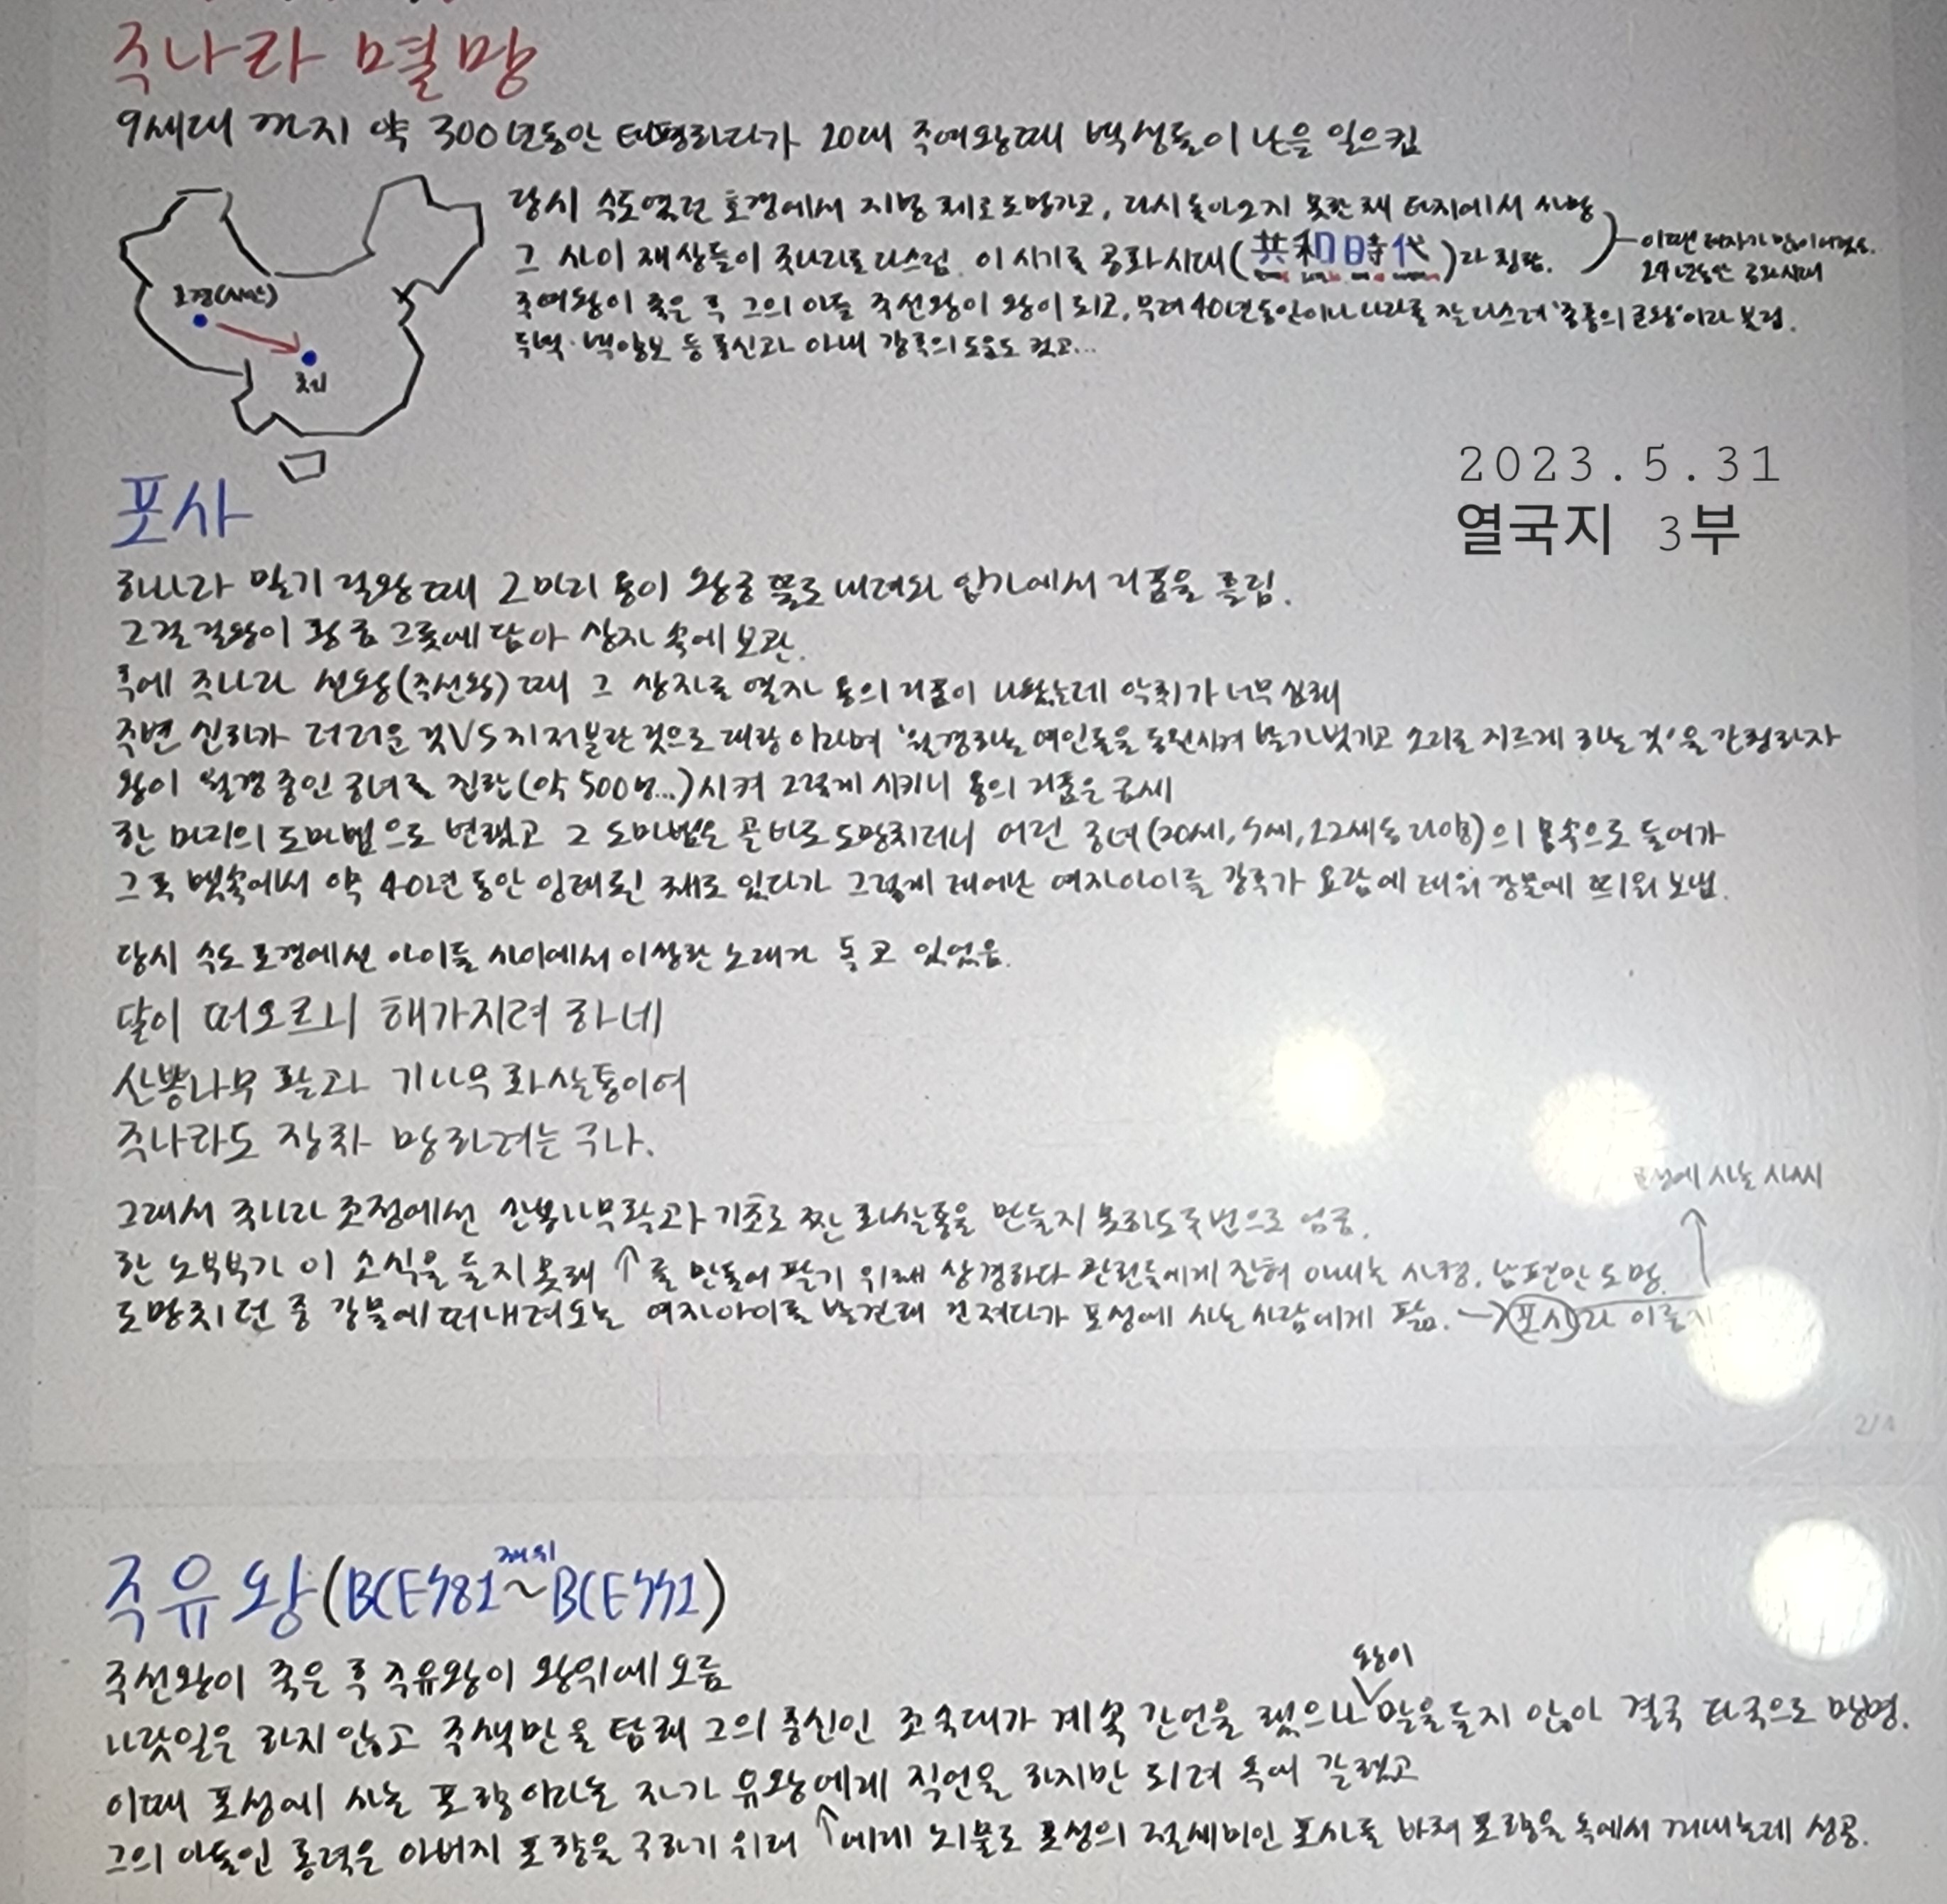 주나라 멸망
9세대 까지 약 300년동안 태평하다가 20대 주여왕때 백성들이 난을 일으킴
당시 수도였던 호경에서 지방 체로 도망가고, 다시 돌아오지 못한 채 타지에서 사망
그 사이 재상들이 주나라를 다스림. 이 시기를 공화시대(共和時代)라 칭함.
이때
14년동안 공화시대
주여왕이 죽은 후 그의 아들 주선왕이 왕이 되고, 무려 40년동안이나 나라를 잘 다스려 '중흥의 군왕'이라 불림.
등 충신과 아내 강후의 도움도 컸고...
호경(시안)
체
2023.5.31
열국지 3부
포사
하나라 말기 걸왕 때 2마리 용이 왕궁 뜰로 내려와 입가에서 거품을 흘림.
그걸 걸왕이 황금 그릇에 담아 상자 속에 보관.
후에 주나라 선왕(주선왕) 때 그 상자를 열자 용의 거품이 나왔는데 악취가 너무 심해
주변 신하가 더러운 것VS지저분한 것으로 대항 이라며 '월경하는 여인들을 동원시켜 발가벗기고 소리를 지르게 하는 것'을 간청하자
왕이 월경 중인 궁녀를 집합(약 500명...)시켜 그렇게 시키니 용의 거품은 금세
한 마리의 도마뱀으로 변했고 그 도마뱀은 곧 바로 도망치더니 어린 궁녀(10세, 7세, 12세등 다양)의 몸속으로 들어가
그 후 뱃속에서 약 40년 동안 잉태된 채로 있다가 그렇게 태어난 여자아이를 강후가 요람에 태워 강물에 띄워 보냄.
당시 수도 호경에선 아이들 사이에서 이상한 노래가 돌고 있었음.
달이 떠오르니 해가지려 하네
산뽕나무 활과 기나무 화살통이여
주나라도 장차 망하려는구나.
그래서 주나라 조정에선 산뽕나무활과 기초로 짠 화살통을 만들지 못하도록 법으로 엄금.
한 노부부가 이 소식을 듣지 못해 ↑를 만들어 팔기 위해 상경하다 관원들에게 잡혀 아내는 사형, 남편만 도망.
도망치던 중 강물에 떠내려오는 여자아이를 발견해 건져다가 포성에 사는 사람에게 팖. → 포사라 이름지
포성에 사는 사씨
2/4
주유왕(BCE781~BCE771)
재위
주선왕이 죽은 후 주유왕이 왕위에 오름
나랏일은 하지 않고 주색만을 탐해 그의 충신인 조숙대가 계속 간언을 했으나 왕이 말을 듣지 않아 결국 타국으로 망명.
이때 포성에 사는 포향이라는 자가 유왕에게 직언을 하지만 되려 옥에 갇혔고
그의 아들인 홍덕은 아버지 포향을 구하기 위해 ↑에게 뇌물로 포성의 절세미인 포사를 바쳐 포향을 옥에서 꺼내는데 성공.